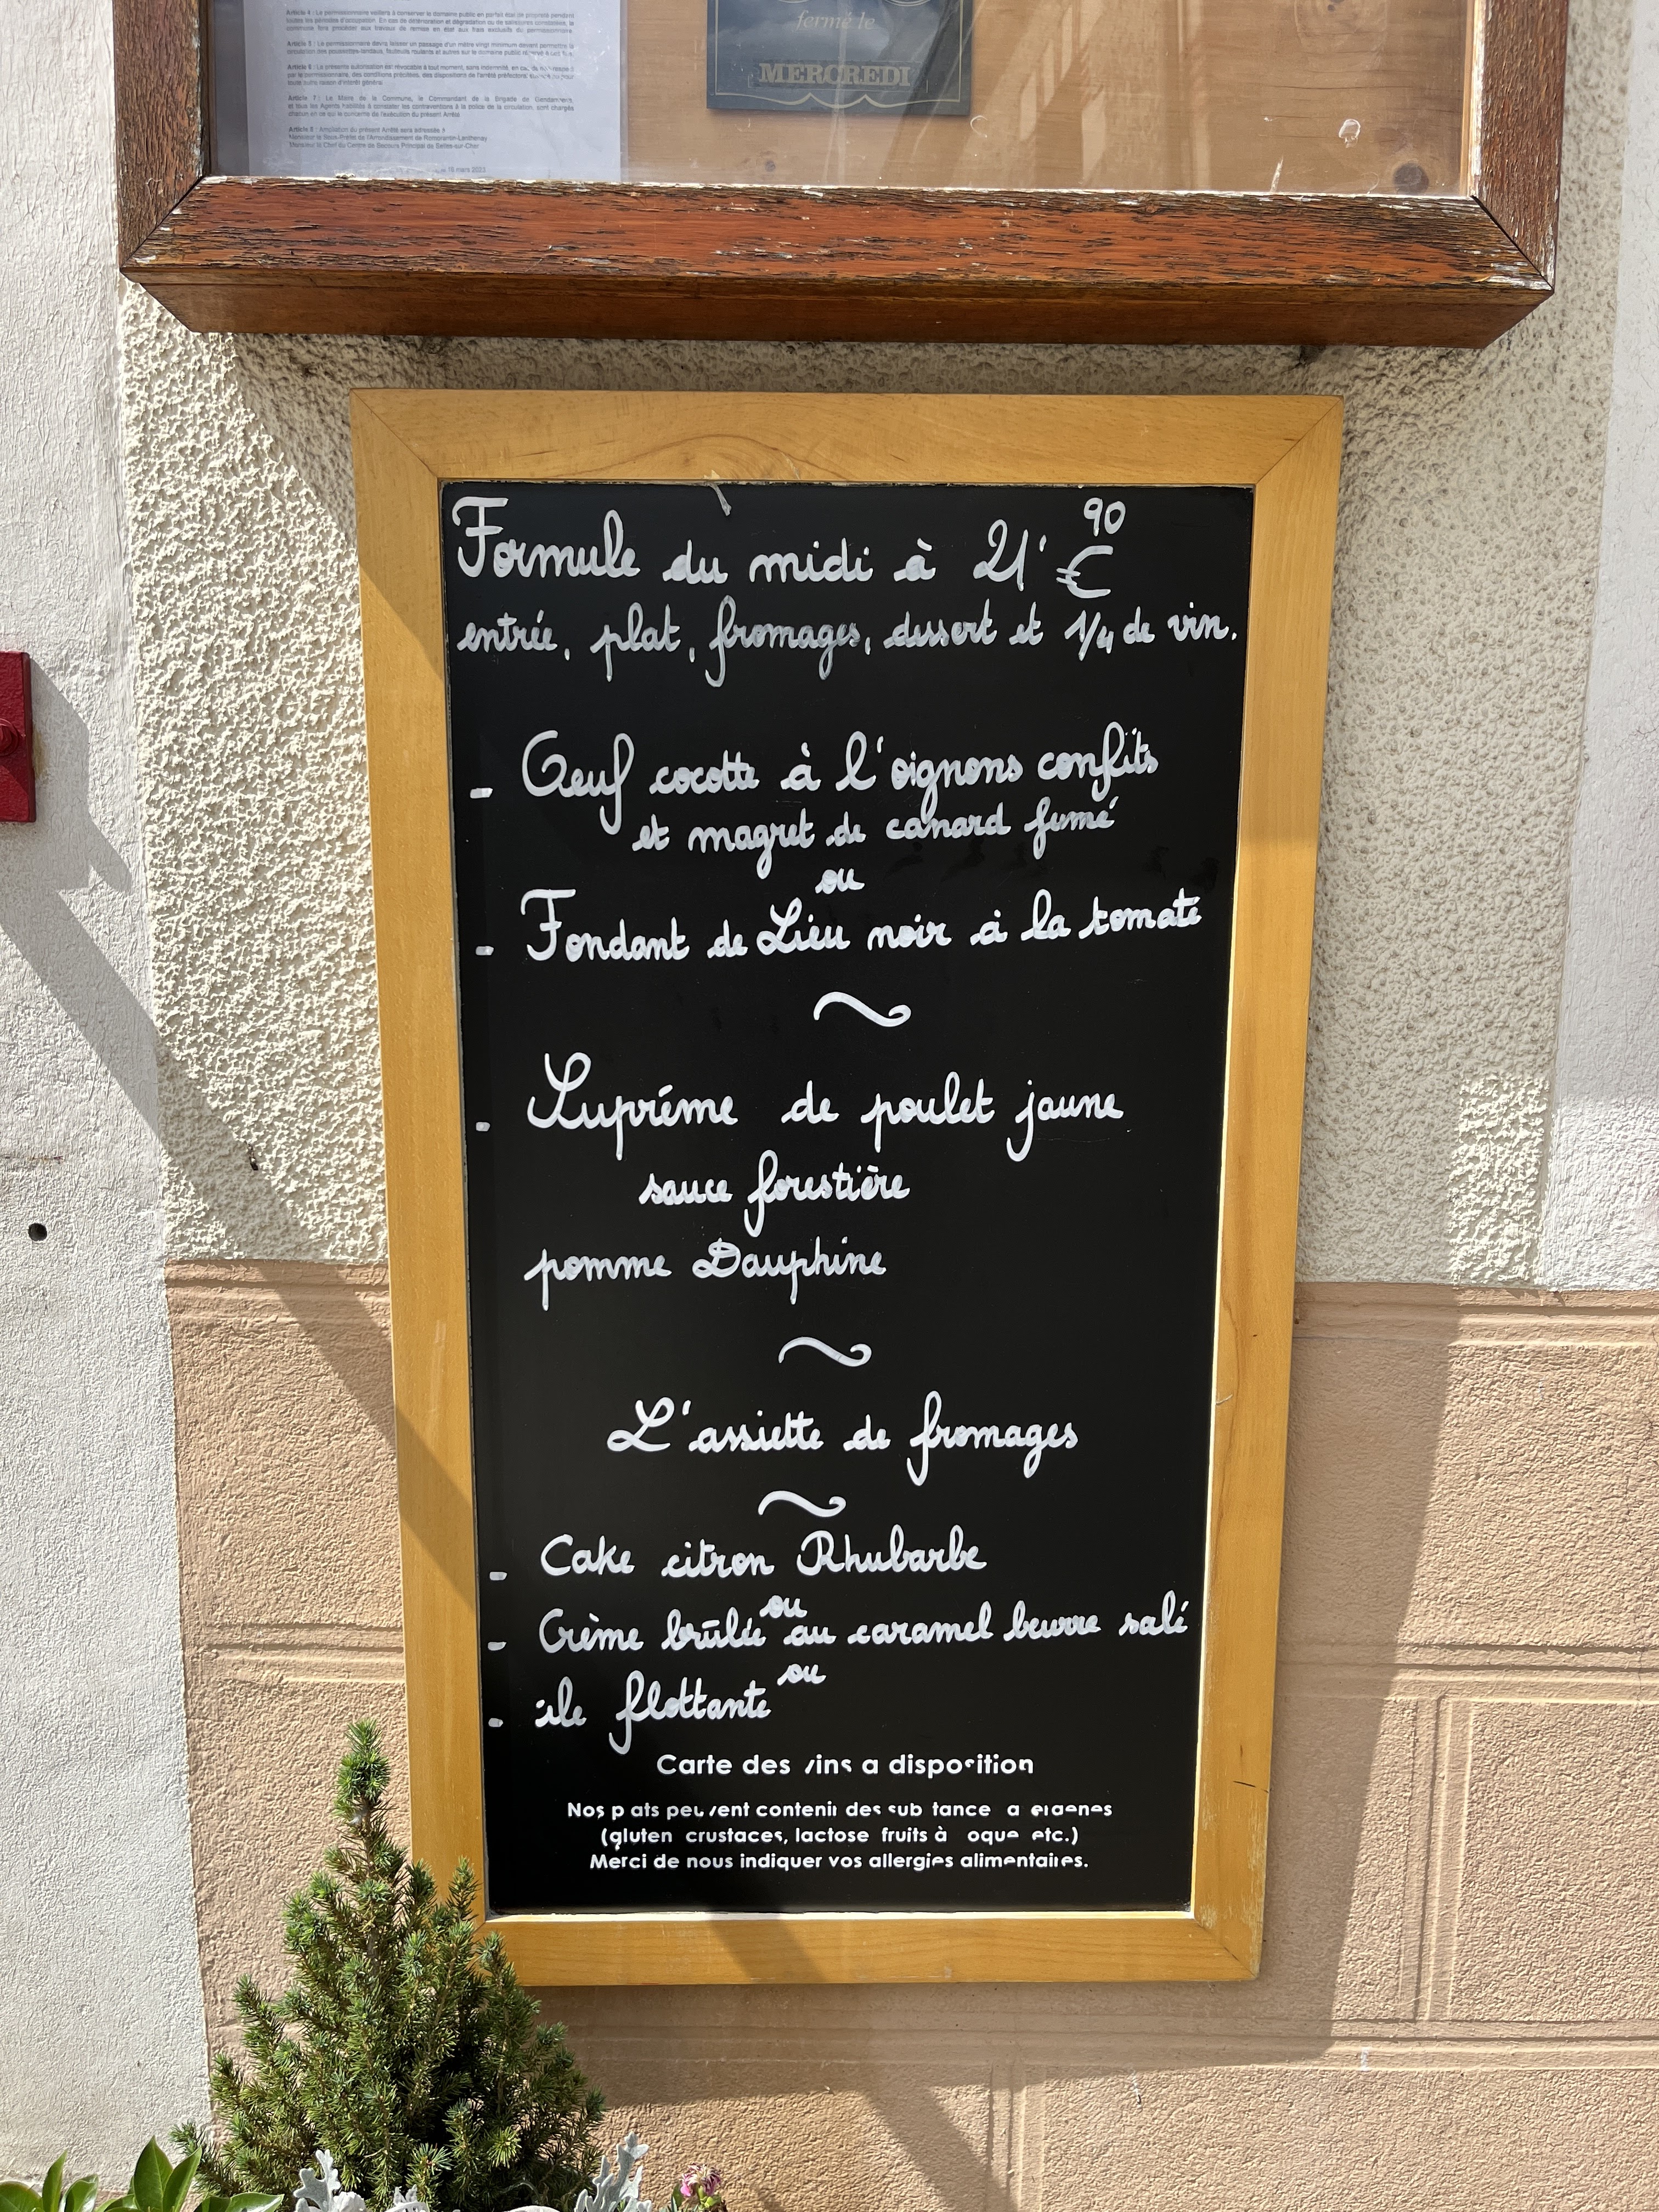 Article 4 : Le permissionnaire veillera à conserver le domaine public en parfait état de propreté pendant
toutes les périodes d'occupation. En cas de détérioration et dégradation ou de salissures constatées, la
commune fera procéder aux travaux de remise en état aux frais exclusifs du permissionnaire.
Article 5 : Le permissionnaire devra laisser un passage d'un mètre vingt minimum devant permettre la
circulation des poussettes-landaus, fauteuils roulants et autres sur le domaine public réservé à cet
Article 6 : La présente autorisation est révocable à tout moment, sans indemnité, en cas de non respect
par le permissionnaire, des conditions précitées, des dispositions de l'arrêté préfectoral ou pour
toute autre raison d'intérêt général.
Article 7 : Le Maire de la Commune, le Commandant de la Brigade de Gendarmerie,
et tous les Agents habilités à constater les contraventions à la police de la circulation, sont chargés
chacun en ce qui le concerne de l'exécution du présent Arrêté
Article 8 : Ampliation du présent Arrêté sera adressée à
Monsieur le Sous-Préfet de l'Arrondissement de Romorantin-Lanthenay
Monsieur le Chef du Centre de Secours Principal de Selles-sur-Cher
19 mars 2023
fermé le
MERCREDI
Formule du midi à 21' €90
entrée, plat, fromages, dessert et 1/4 de vin.
- Oeuf cocotte à l'oignons confits
et magret de canard fumé
ou
- Fondant de Lieu noir à la tomate
~
- Suprême de poulet jaune
sauce forestière
pomme Dauphine
~
L'assiette de fromages
~
- Cake citron Rhubarbe
ou
- Crème brûlée au caramel beurre salé
ou
- île flottante
Carte des vins a disposition
Nos plats peuvent contenir des substance a ergenes
(gluten crustaces, lactose fruits à oque etc.)
Merci de nous indiquer vos allergies alimentaires.